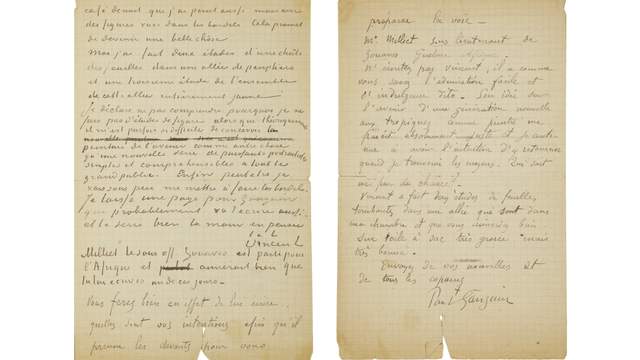 café devant que j'ai peint aussi mais avec
des figures vues dans les bordels. Cela promet
de devenir une belle chose.
Moi j'ai fait deux études d'une chute
des feuilles dans une allée de peupliers
et une troisième étude de l'ensemble
de cette allée entièrement jaune.
Je déclare ne pas comprendre pourquoi je ne
fais pas d'études de figure alors que théoriquement
il m'est parfois si difficile de concevoir la
peinture de l'avenir comme autre chose
qu'une nouvelle série de puissants portraitistes
simples et compréhensibles à tout le
grand public. Enfin peut-être je
vais sous peu me mettre à faire les bordels.
Je laisse une page pour Gauguin
que probablement va t'écrire aussi
et te serre bien la main en pensée
t. à t.
Vincent
Milliet le sous off. Zouaves est parti pour
l'Afrique et aimerait bien que
tu lui écrives un de ces jours.
Vous ferez bien en effet de lui écrire
quelles sont vos intentions afin qu'il
prenne les devants pour vous
préparer la voie —
Mr Milliet sous lieutenant de
Zouaves Guelma Afrique.
N'écoutez pas Vincent, il a comme
vous savez l'admiration facile et
l'indulgence dito. Son idée sur
l'avenir d'une génération nouvelle
aux tropiques comme peintre me
paraît absolument juste et je continue
à avoir l'intention d'y retourner
quand je trouverai les moyens. Qui sait
un peu de chance?
Vincent a fait deux études de feuilles
tombantes dans une allée qui sont dans
ma chambre et que vous aimeriez bien
sur toile à sac très grosse mais
très bonne.
Envoyez de vos nouvelles et
de tous les copains
Paul Gauguin